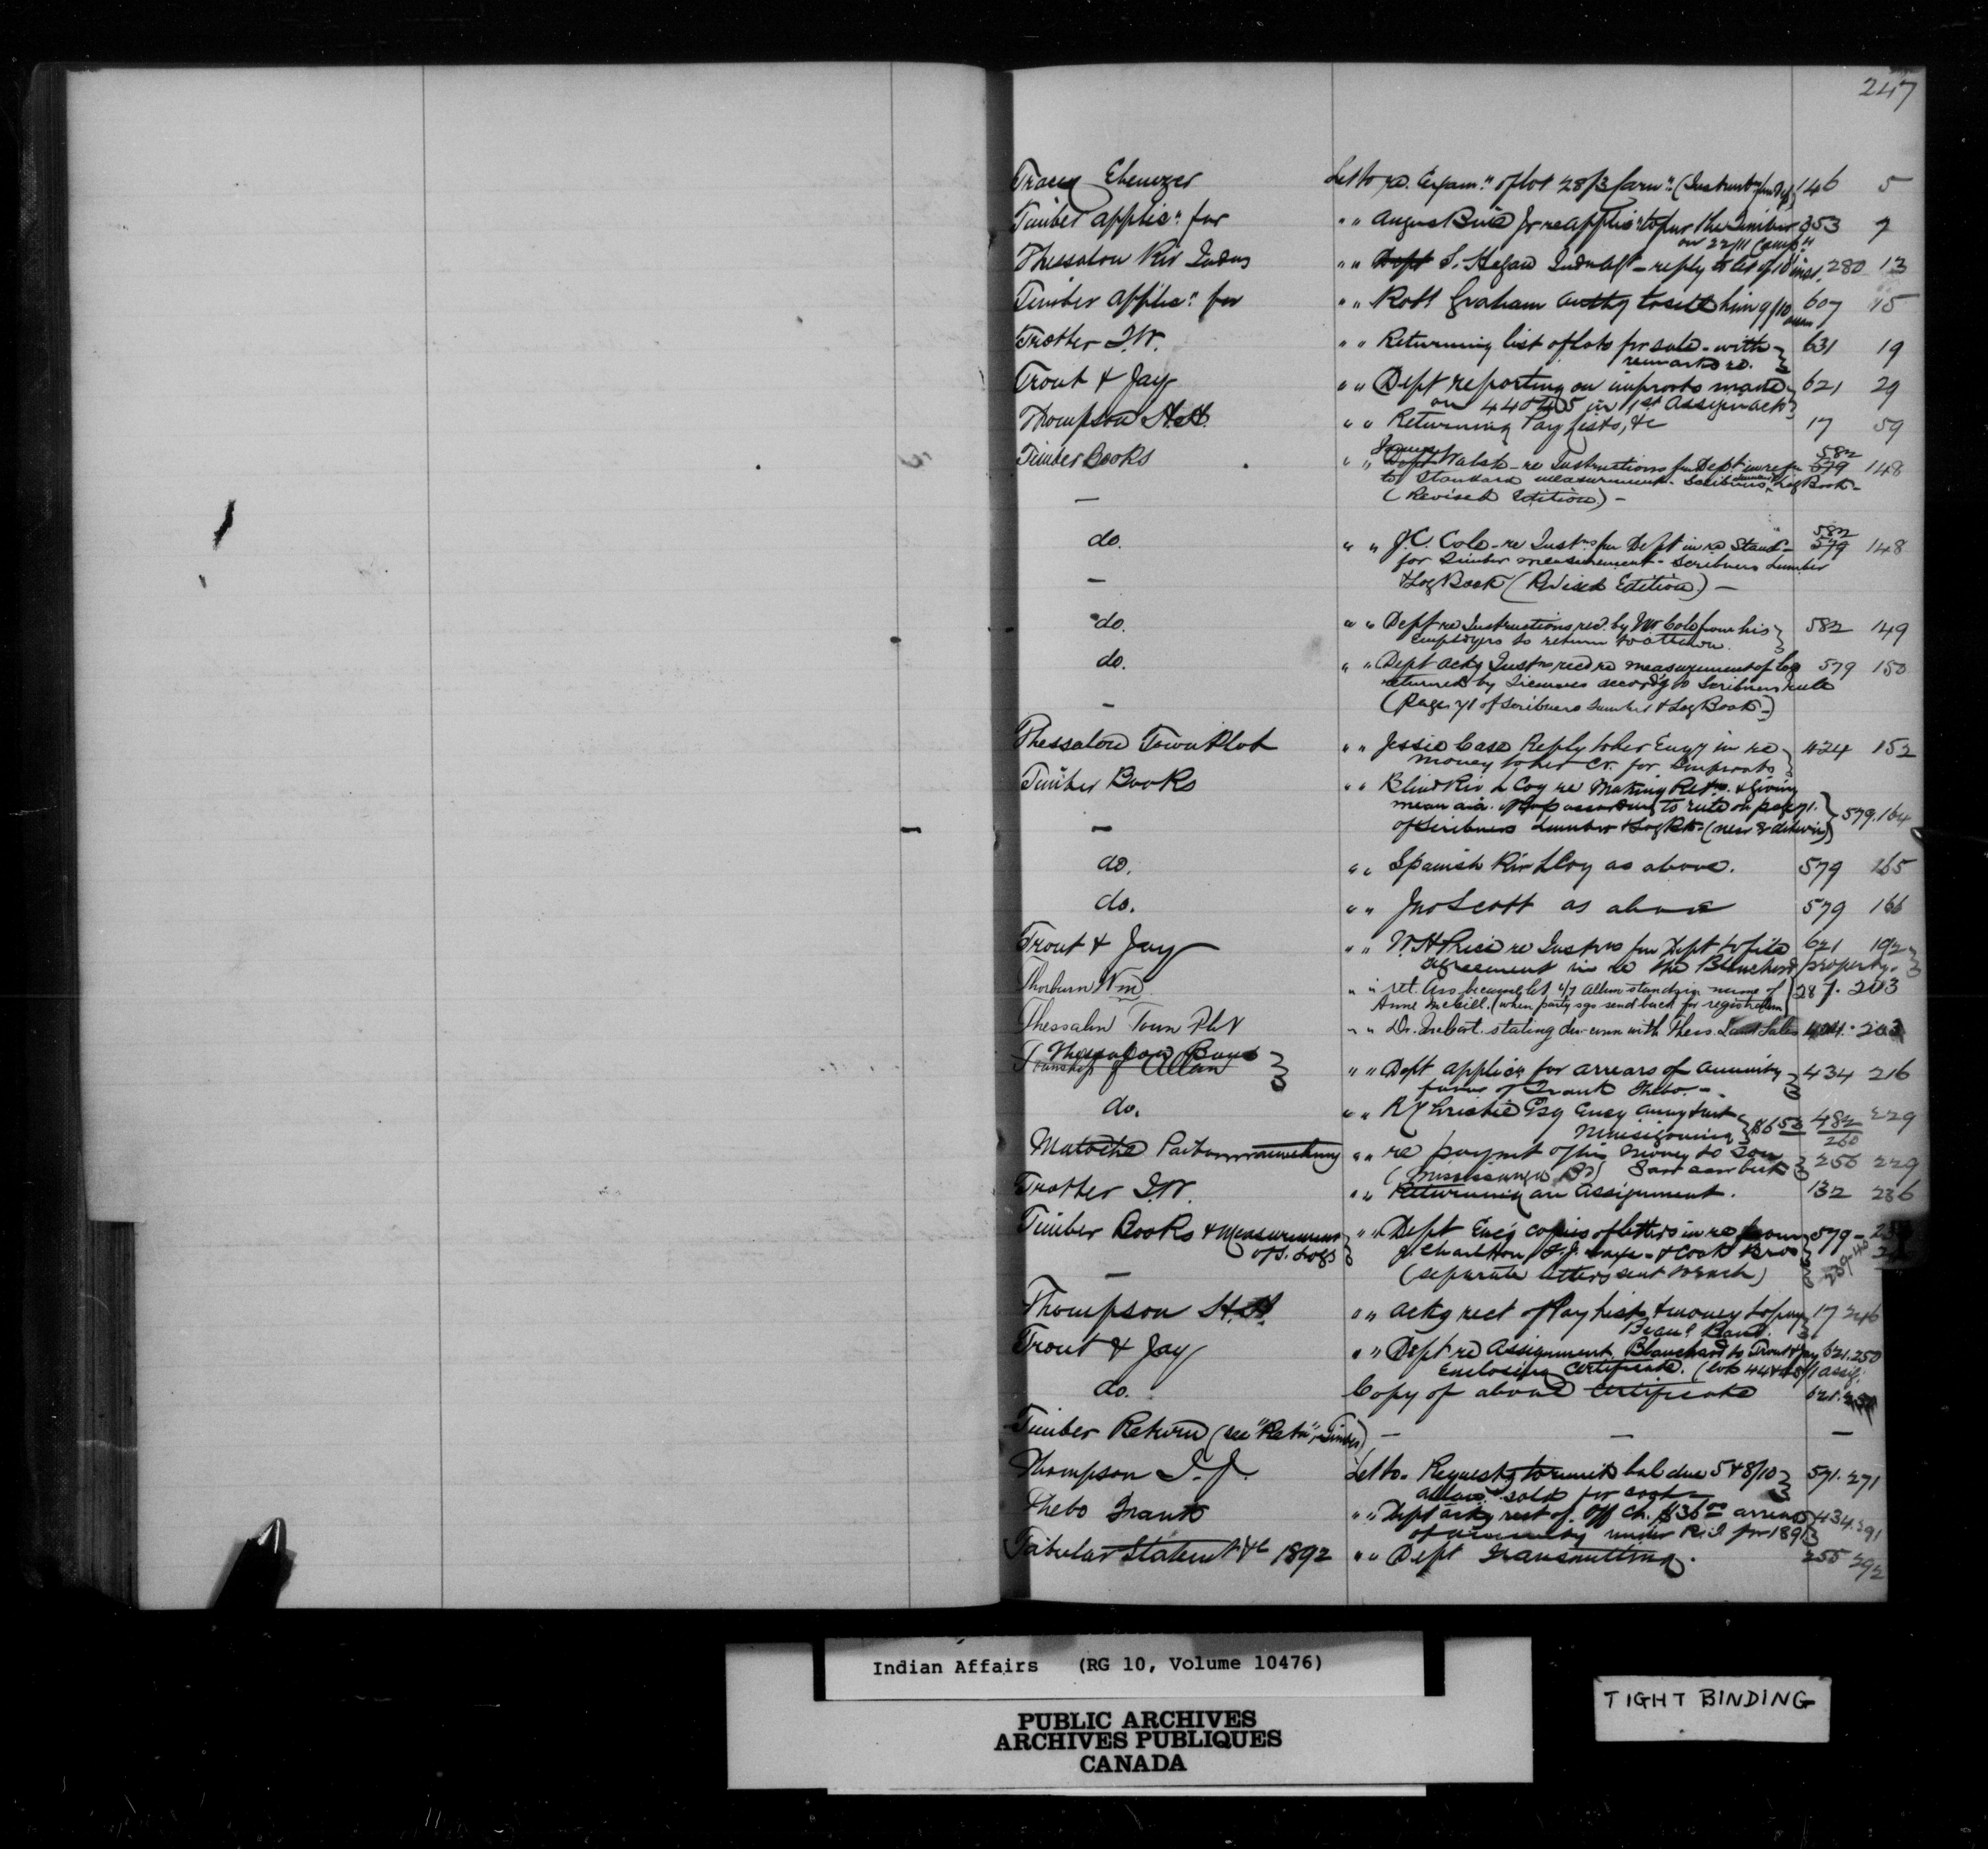 247
Tracey Ebenezer Let to re. Exam." of lot 28/3 (Instruct
146 5
Timber applic.n for " " Angus re applic.n to pur the timber 353 7
on 22/11
Thessalon Riv Indns " " Dept S. Hagan Ind. Agt - reply to let of 10 inst. 280 13
Timber applic.n for " " Robt Graham to sell him 9/10 607 15
Trotter J.W. " " Returning list of lots for sale - with 631 19
remarks re.
Trout & Jay " " Dept reporting on improvts made 621 29
on 44 & 45 in 1st Assiginack
Thompson H.H. " " Returning Pay lists, &c 17 59
James 582
Timber Books " " Dept Walsh - re Instructions fm Dept in re 579 148
to Standard measurement - Scribners Lumber & Log Book -
— (Revised Edition) -
582
do. " " J.C. Cole - re Inst.ns fm Dept in re Stand- 579 148
for timber measurement - Scribners Lumber
— & Log Book (Revised Edition) —
do. " " Dept re Instructions recd. by Mr Cole from his 582 149
employers to return to Ottawa.
do. " " Dept ackg Inst.ns recd re measurement of logs 579 150
returned by Licensees accord'g to Scribners rule
— (page 71 of Scribners Lumber & Log Book -)
Thessalon Town Plot " " Jessie Case Reply to her Enqy in re 424 152
money to her Cr. for Improvts
Timber Books " " Blind Riv L Coy re Making Retns. & giving
mean dia. of logs according to rule on page 71. 579. 164
— of Scribners Lumber & Log Bk - (new Edition)
do. " " Spanish Riv L Coy as above. 579 165
do. " " Jno Scott as above 579 166
Trout & Jay " " W.H. Price re Instrns fm Dept to file 621 192
agreement in re the Blanchard property.
Thorburn Wm " " ret. Ass. because lot 4/7 Allan stands in name of 287. 203
Anne McGill. (when party sgs send back for registration)
Thessaln Town Plot " " Dr. stating in conn with Thess. Land Sales 404. 203
Thessalon Band
Township of Allan " " Dept applicn for arrears of annuity 434 216
favor of Frank Thebo. -
do. " " R J Christie Esq Ency 482 229
$6 50 260
" " re paymt of his money to Son 250 229
(Mississauga Bd)
Trotter J.W. " " Returning an assignment. 132 236
Timber Books & Measurement " " Dept Enc'g copies of letters in re from 579 -
of S. Logs J. Charlton & Cook Bros 239-40
— (separate letters sent to each)
Thompson H.H. " " ackg rect of Pay lists & money to pay 17 246
Band.
Trout & Jay " " Dept re Assignment Blanchard to Trout & Jay 621. 250
Enclosing Certificate. (lots 44 & 45/1 assig.
do. Copy of above Certificate 621.
Timber Return (see "Retn", Timber) — — —
Thompson J.J. Let to - Requestg to remit bal due 5 & 8/10 571. 271
Allan sold for
Thebo Frank " " Dept ackg rect of Off Ch. $36 00 arrears 434. 291
of annuity under R. T. for 1891
Tabular Statemt &c 1892 " " Dept Transmitting. 255 292
Indian Affairs (RG 10, Volume 10476)
PUBLIC ARCHIVES
ARCHIVES PUBLIQUES
CANADA
TIGHT BINDING